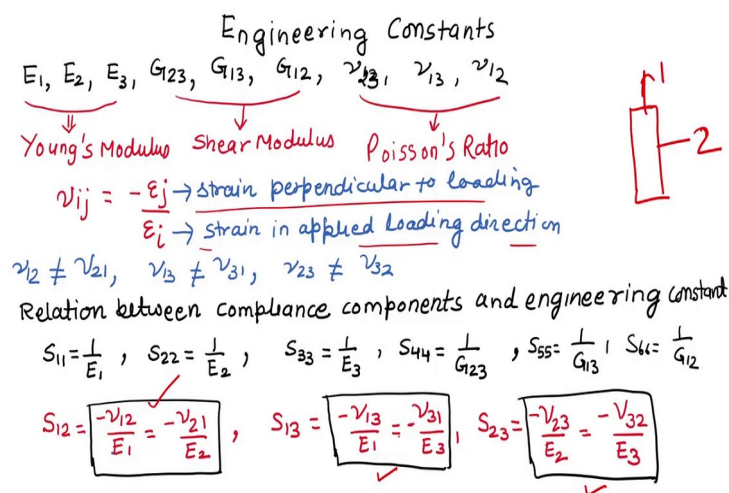 Engineering Constants
E1, E2, E3, G23, G13, G12, ν23, ν13, ν12
Young's Modulus Shear Modulus Poisson's Ratio
1
2
νij = -εj → strain perpendicular to loading
εi → strain in applied Loading direction
ν12 ≠ ν21, ν13 ≠ ν31, ν23 ≠ ν32
Relation between compliance components and engineering constant
S11 = 1/E1, S22 = 1/E2, S33 = 1/E3, S44 = 1/G23, S55 = 1/G13, S66 = 1/G12
S12 = -ν12/E1 = -ν21/E2, S13 = -ν13/E1 = -ν31/E3, S23 = -ν23/E2 = -ν32/E3